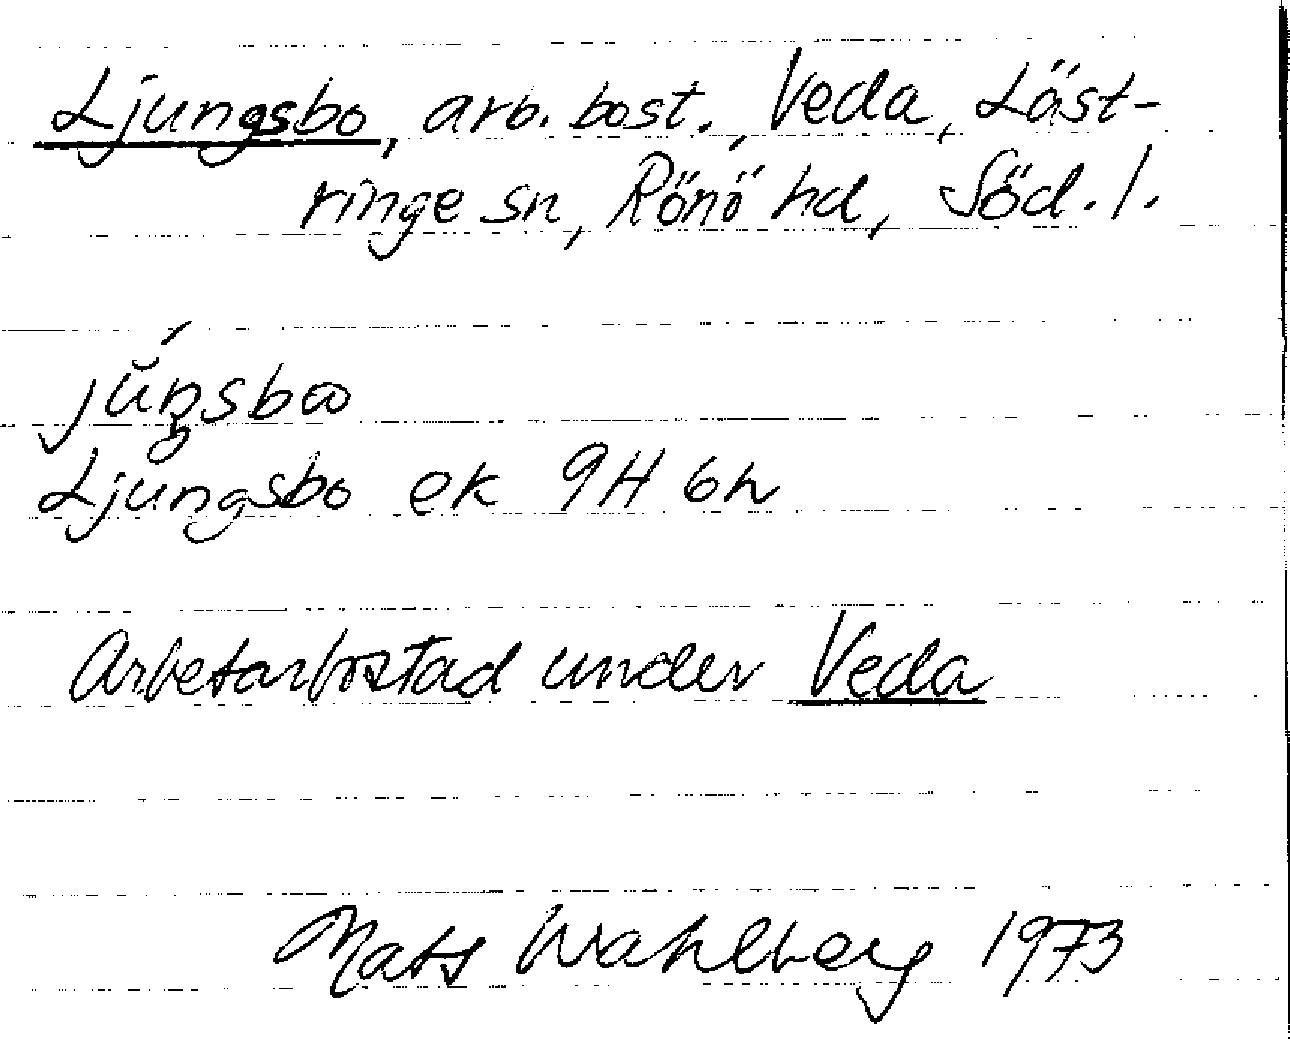 Ljungsbo, arb. bost., Veda, Läst-
ringe sn, Rönö hd, Söd. l.
Ljungsbo ek 9H 6h
Arbetarbostad under Veda
Mats Wahlberg 1973